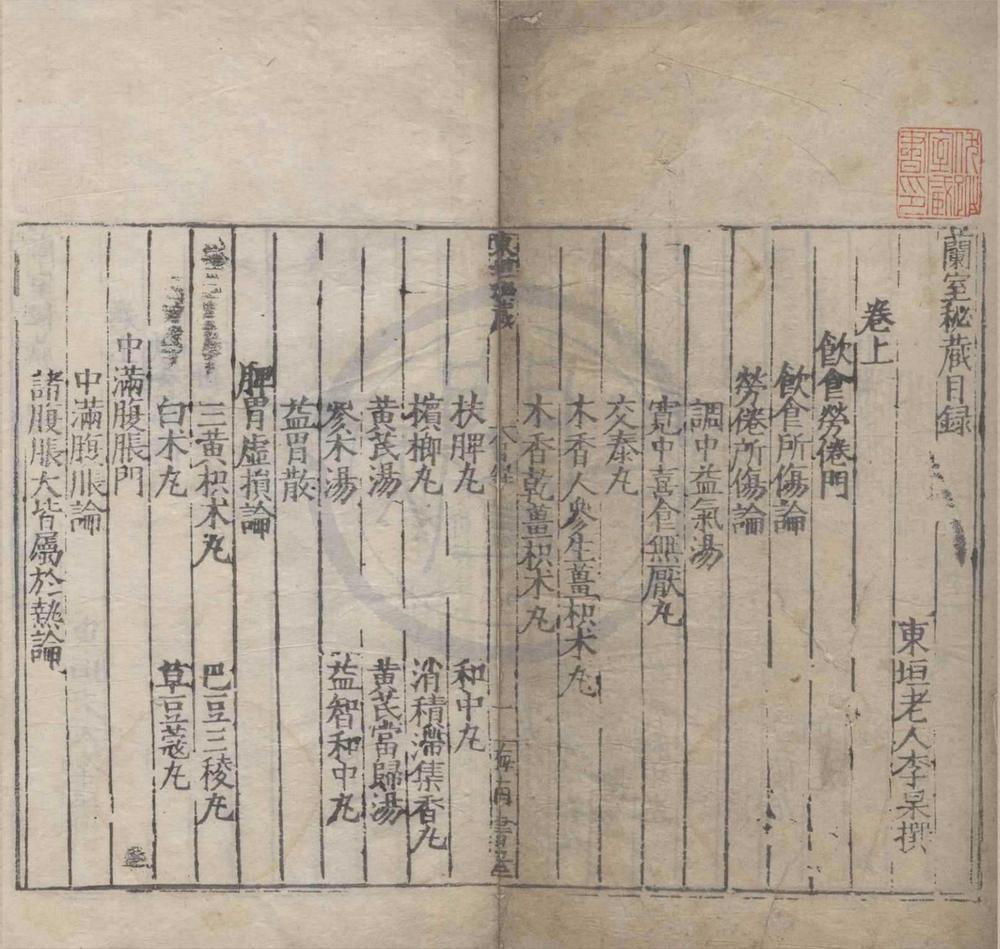 蘭室秘藏目録
東垣老人李杲撰
卷上
飲食勞倦門
飲食所傷論
勞倦所傷論
調中益氣湯
寛中喜食無厭丸
交泰丸
木香人參生薑枳术丸
木香乾薑枳术丸
一
海南書
扶脾丸 和中丸
檳榔丸 消積滯集香丸
黄芪湯 黄芪當歸湯
參术湯 益智和中丸
益胃散
脾胃虚損論
三黄枳术丸 巴豆三稜丸
白术丸 草豆蔻丸
中滿腹脹門
中滿腹脹論
諸腹脹大皆屬於熱論